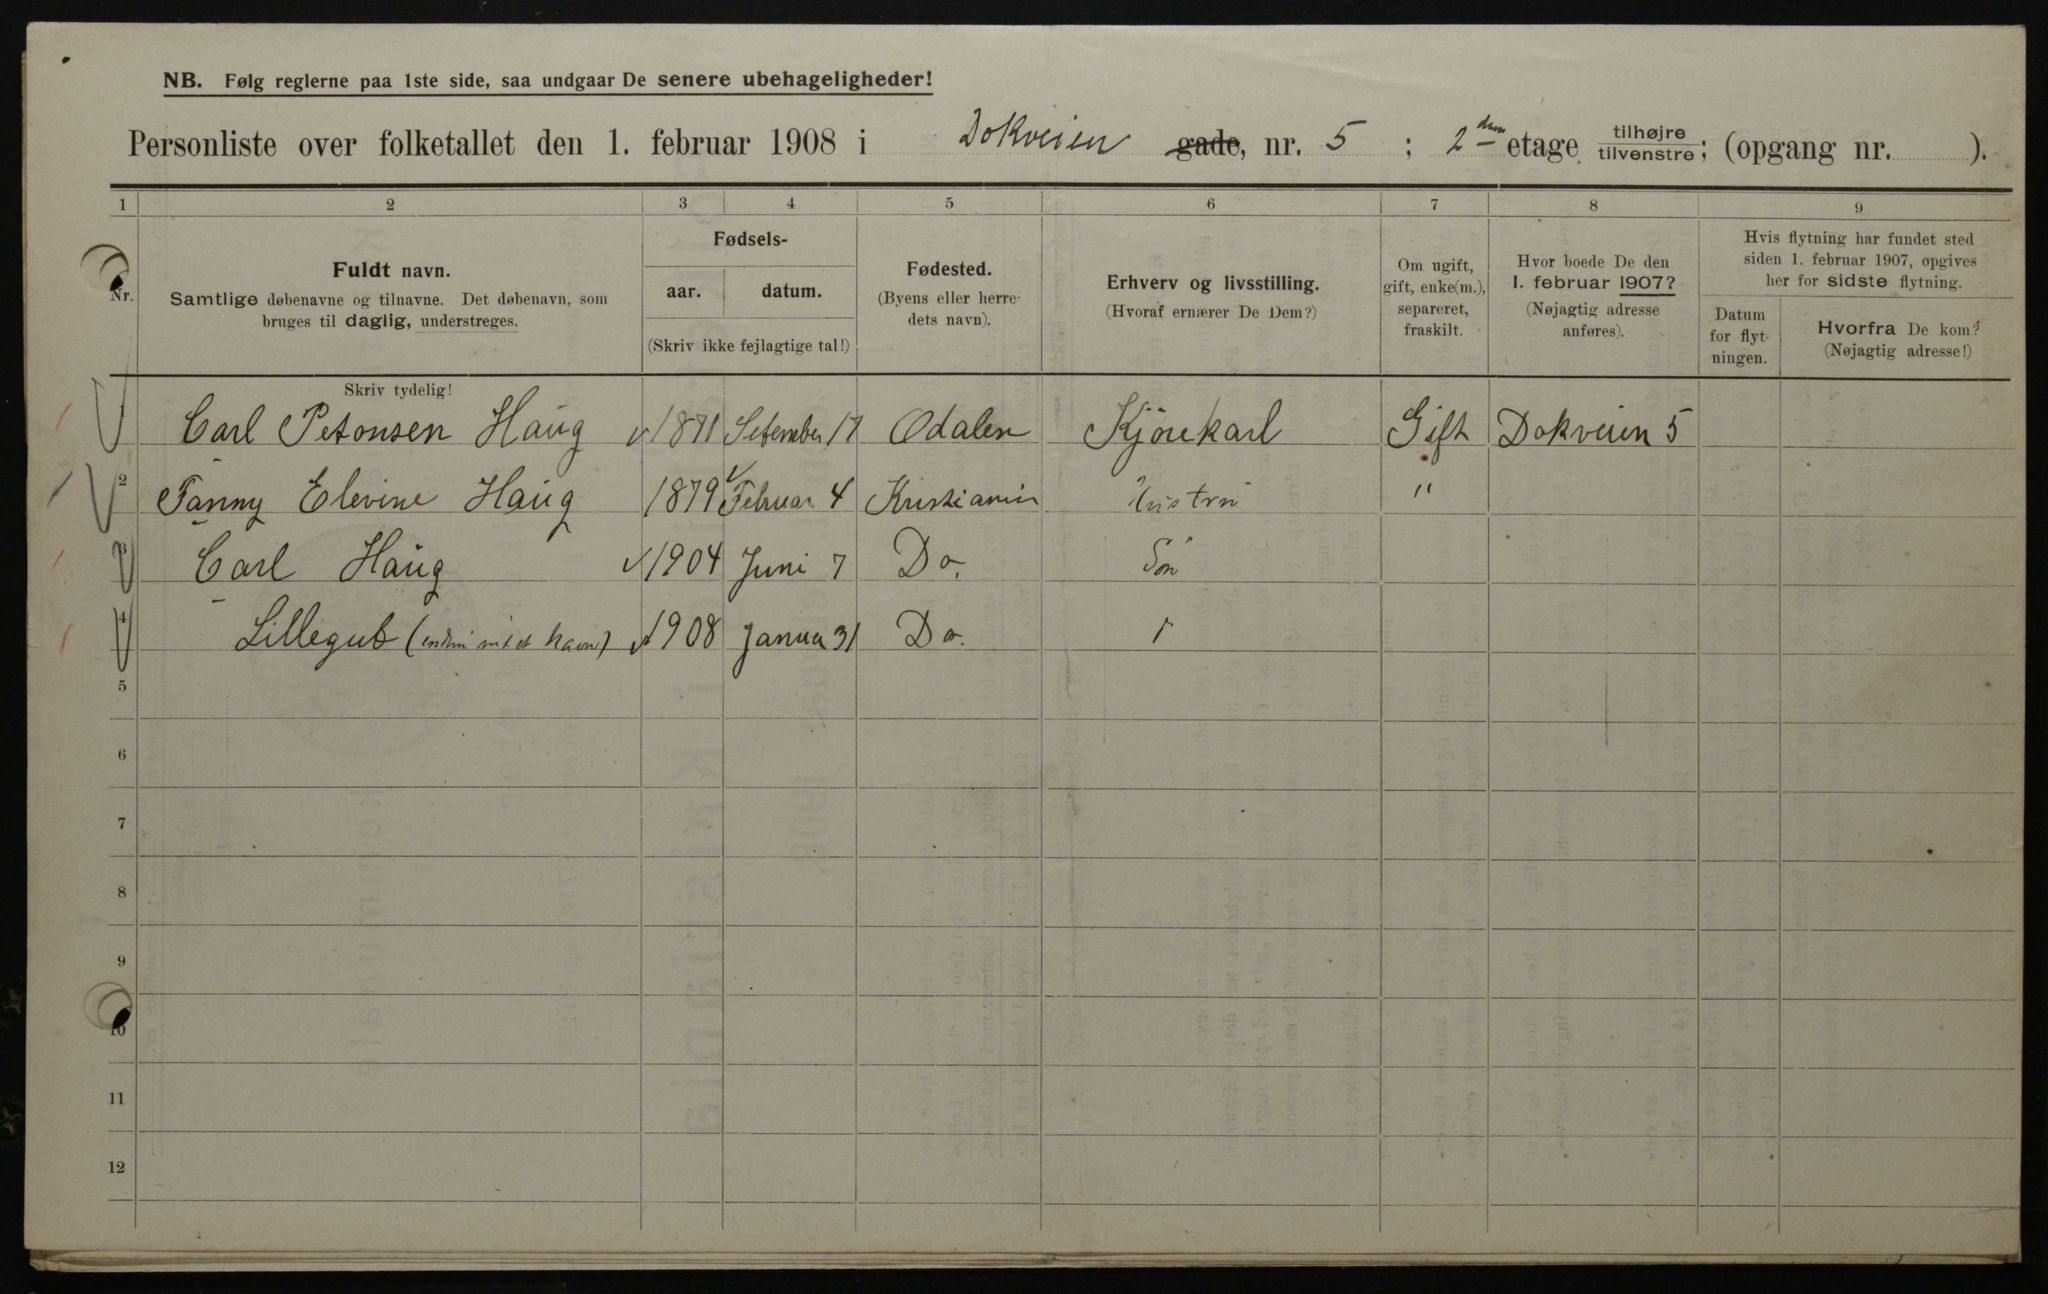 NB. Følg reglerne paa 1ste side, saa undgaar De senere ubehageligheder!
Personliste over folketallet den 1. februar 1908 i Dokveien gade, nr. 5 ; 2den etage tilhøjre / tilvenstre; (opgang nr. ).
1 2 3 4 5 6 7 8 9
Nr.
Fuldt navn.
Samtlige døbenavne og tilnavne. Det døbenavn, som
bruges til daglig, understreges.
Skriv tydelig!
Fødsels-
aar. datum.
(Skriv ikke fejlagtige tal!)
Fødested.
(Byens eller herre-
dets navn).
Erhverv og livsstilling.
(Hvoraf ernærer De Dem?)
Om ugift,
gift, enke(m.),
separeret,
fraskilt.
Hvor boede De den
1. februar 1907?
(Nøjagtig adresse
anføres).
Hvis flytning har fundet sted
siden 1. februar 1907, opgives
her for sidste flytning.
Datum
for flyt-
ningen.
Hvorfra De kom?
(Nøjagtig adresse!)
1 Carl Petonsen Haug 1871 Setember 17 Odalen Kjörekarl Gift Dokveien 5
2 Fanny Elevine Haug 1879 Februar 4 Kristiania Hustru "
3 Carl Haug 1904 Juni 7 Do. Sön
4 Lillegut ( navn) 1908 Janua 31 Do. "
5
6
7
8
9
10
11
12